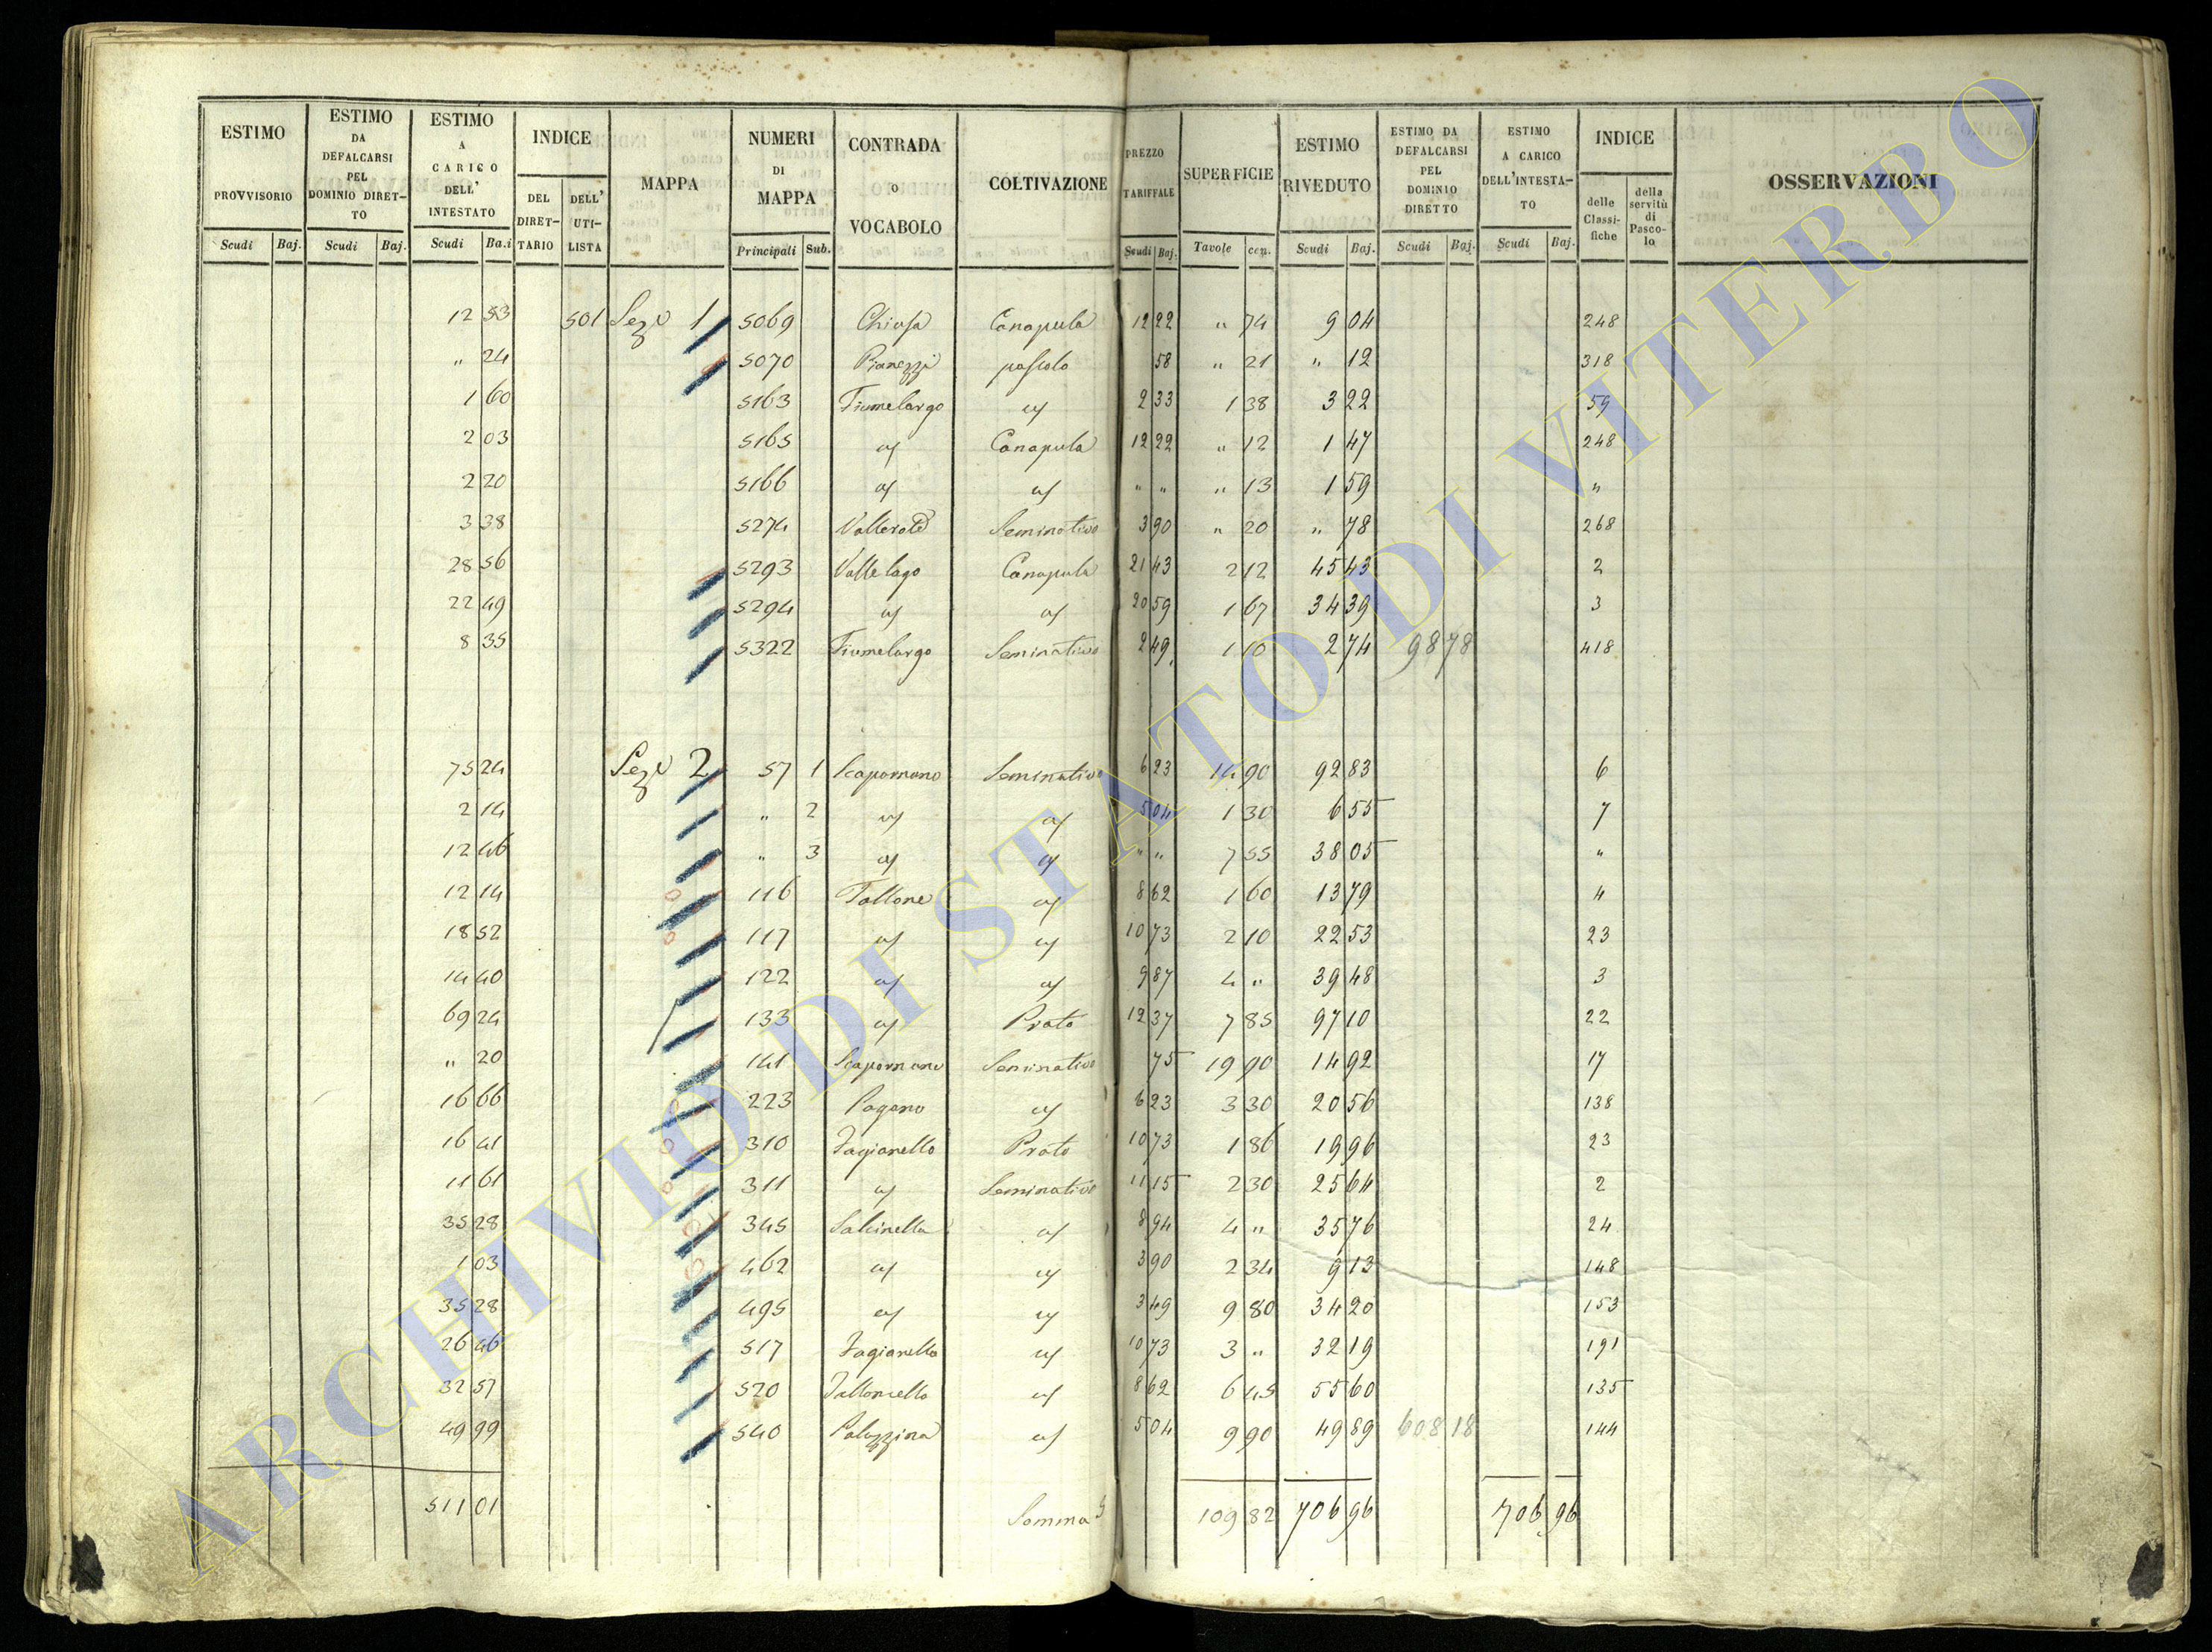 ESTIMO PROVVISORIO
ESTIMO DA DEFALCARSI PEL DOMINIO DIRET- TO
ESTIMO A CARICO DELL' INTESTATO
INDICE
DEL DIRET- TARIO
DELL' UTI- LISTA
MAPPA
NUMERI DI MAPPA
CONTRADA o VOCABOLO
COLTIVAZIONE
PREZZO TARIFFALE
SUPERFICIE
ESTIMO RIVEDUTO
ESTIMO DA DEFALCARSI PEL DOMINIO DIRETTO
ESTIMO A CARICO DELL'INTESTA- TO
INDICE
delle Classi- fiche
della servitù di Pasco- lo
OSSERVAZIONI
Scudi Baj. Scudi Baj. Scudi Ba.i Principali Sub. Scudi Baj. Tavole cen. Scudi Baj. Scudi Baj. Scudi Baj.
12 53 501 Sez 1 5069 Chiusa Canapula 12 22 " 74 9 04 248
" 24 5070 Pianezzi pascolo 58 " 21 " 12 318
1 60 5163 Fiumelargo 2 33 1 38 3 22 59
2 03 5165 Canapula 12 22 " 12 1 47 248
2 20 5166 " " " 13 1 59 "
3 38 5274 Seminativo 3 90 " 20 " 78 268
28 56 5293 Valle lago Canapula 21 43 2 12 45 43 2
22 49 5294 20 59 1 67 34 39 3
8 35 5322 Fiumelargo Seminativo 2 49 1 10 2 74 98 78 418
75 24 Sez 2 57 1 Scapornano Seminativo 6 23 14 90 92 83 6
2 14 " 2 5 04 1 30 6 55 7
12 46 " 3 " " 7 55 38 05 "
12 14 116 Fallone 8 62 1 60 13 79 4
18 52 117 10 73 2 10 22 53 23
14 40 122 9 87 4 " 39 48 3
69 24 133 Prato 12 37 7 85 97 10 22
" 20 141 Scapornano Seminativo 75 19 90 14 92 17
16 66 223 Pagano 6 23 3 30 20 56 138
16 41 310 Fagianello Prato 10 73 1 86 19 96 23
11 61 311 Seminativo 11 15 2 30 25 64 2
35 28 345 Salcinella 8 94 4 " 35 76 24
1 03 462 3 90 2 34 9 13 148
35 28 495 3 49 9 80 34 20 153
26 46 517 Fagianello 10 73 3 " 32 19 191
32 57 520 Falloncello 8 62 6 45 55 60 135
49 99 540 Palazzina 5 04 9 90 49 89 608 18 144
511 01 Somma 109 82 706 96 706 96
ARCHIVIO DI STATO DI VITERBO